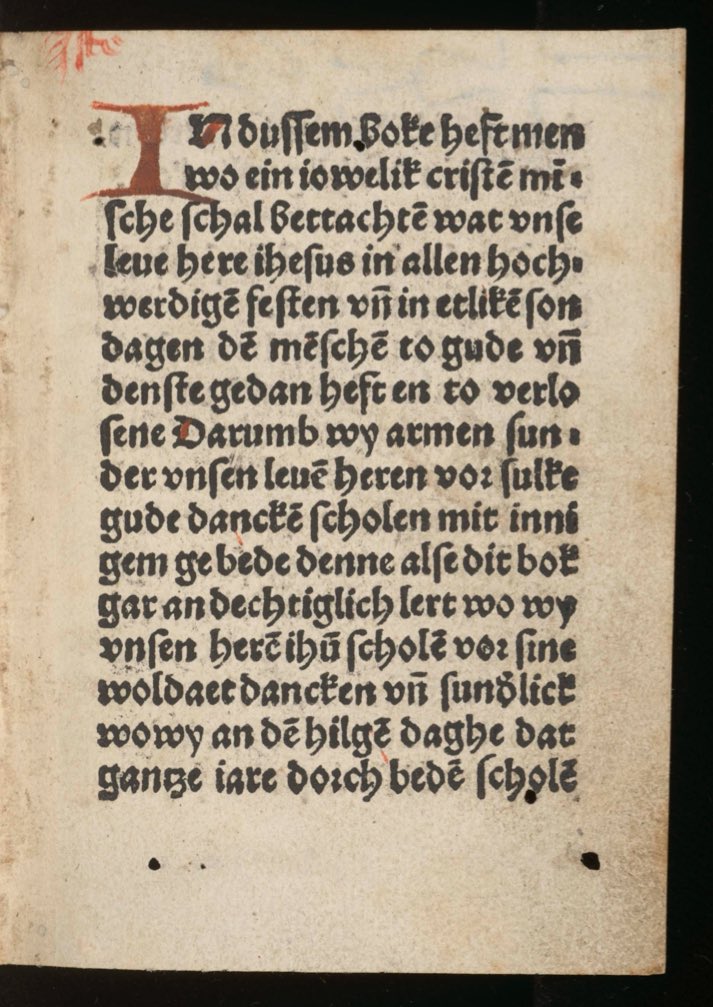 IN dussem boke heft men
wo ein iowelik cristē mī⸗
sche schal bettachtē wat vnse
leue here ihesus in allen hoch⸗
werdigē festen vn̄ in etlikē son
dagen dē mēschē to gude vn̄
denste gedan heft en to verlo
sene Darumb wy armen sun⸗
der vnsen leuē heren vor sulke
gude danckē scholen mit inni
gem gebede denne alse dit bok
gar andechtiglich lert wo wy
vnsen herē ihū scholē vor sine
woldaet dancken vn̄ sund̓lick
wo wy an dē hilgē daghe dat
gantze iare dorch bedē scholē